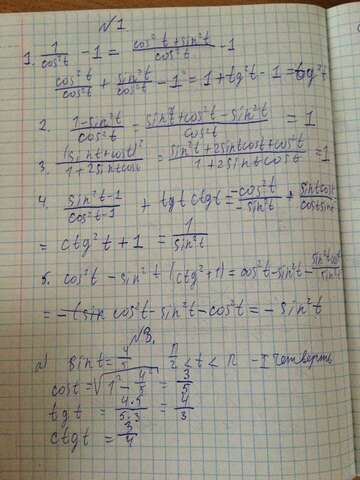 №1
1. 1/cos²t - 1 = (cos²t + sin²t)/cos²t - 1
cos²t/cos²t + sin²t/cos²t - 1 = 1 + tg²t - 1 = tg²t
2. (1 - sin²t)/cos²t = (sin²t + cos²t - sin²t)/cos²t = 1
3. (sint + cost)²/(1 + 2sintcost) = (sin²t + 2sintcost + cos²t)/(1 + 2sintcost) = 1
4. (sin²t - 1)/(cos²t - 1) + tgt ctgt = -cos²t/-sin²t + sintcost/costsint
= ctg²t + 1 = 1/sin²t
5. cos²t - sin²t (ctg²t + 1) = cos²t - sin²t - sin²tcos²t/sin²t
= cos²t - sin²t - cos²t = - sin²t
№3.
а) sint = 4/5 π/2 < t < π - I четверть
cost = √(1² - 4²/5) = 3/5
tgt = 4·5/5·3 = 4/3
ctgt = 3/4